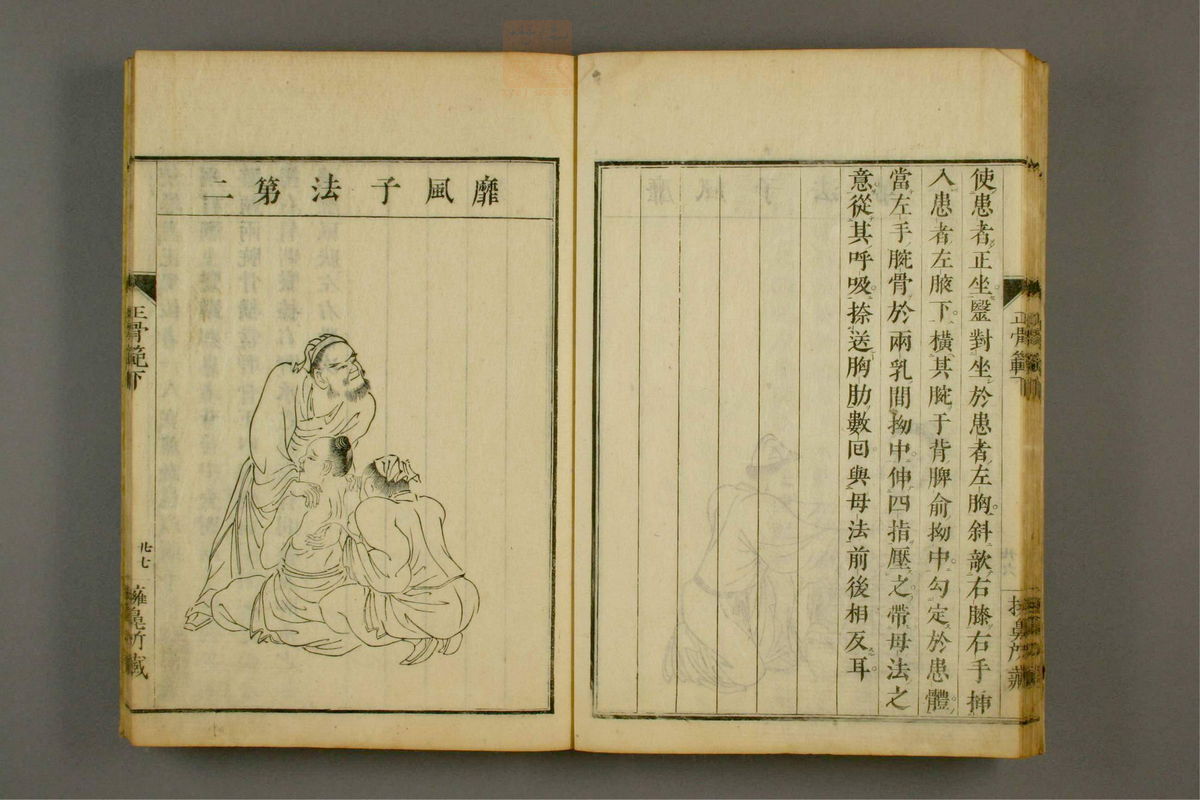 使患者正坐毉對坐於患者左胸斜歆右膝右手挿
入患者左腋下橫其腕于背脾俞拗中勾定於患體
當左手腕骨於兩乳間拗中伸四指壓之帶母法之
意從其呼吸捺送胸肋數回與母法前後相反耳
正骨範下
靡風子法第二
正骨範下
廾七